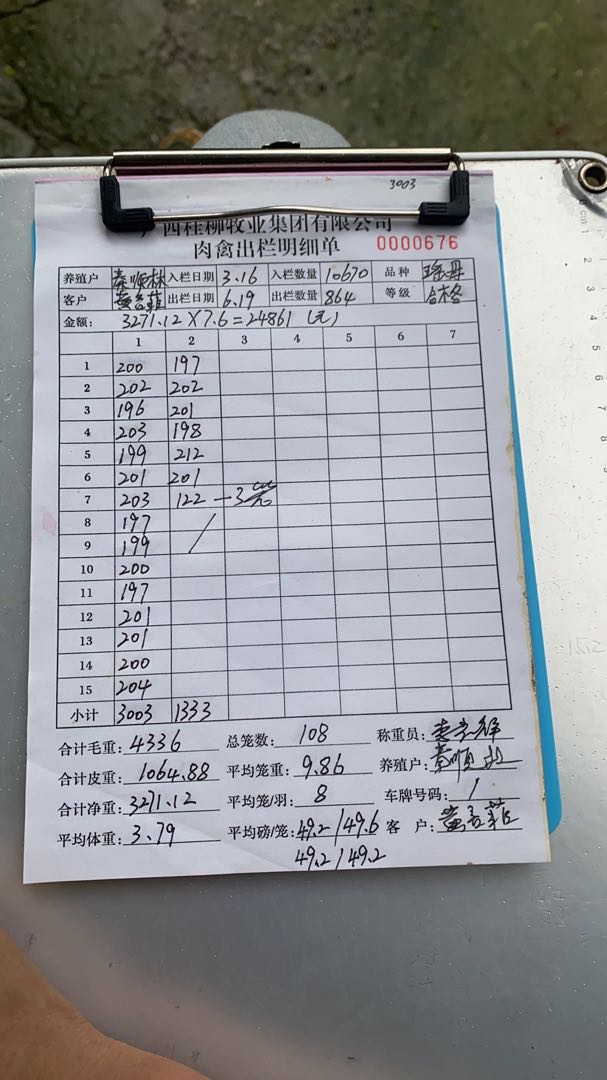 3003
西桂柳牧业集团有限公司
肉禽出栏明细单 0000676
养殖户 秦顺林 入栏日期 3.16 入栏数量 10670 品种
客户 出栏日期 6.19 出栏数量 864 等级 合格
金额: 3271.12×7.6=24861(元)
1 2 3 4 5 6 7
1 200 197
2 202 202
3 196 201
4 203 198
5 199 212
6 201 201
7 203 122 — 3
8 197 /
9 199
10 200
11 197
12 201
13 201
14 200
15 204
小计 3003 1333
合计毛重: 4336 总笼数: 108 称重员:
合计皮重: 1064.88 平均笼重: 9.86 养殖户:
合计净重: 3271.12 平均笼/羽: 8 车牌号码: /
平均体重: 3.79 平均磅/笼: 49.2/49.6 客 户:
49.2/49.2